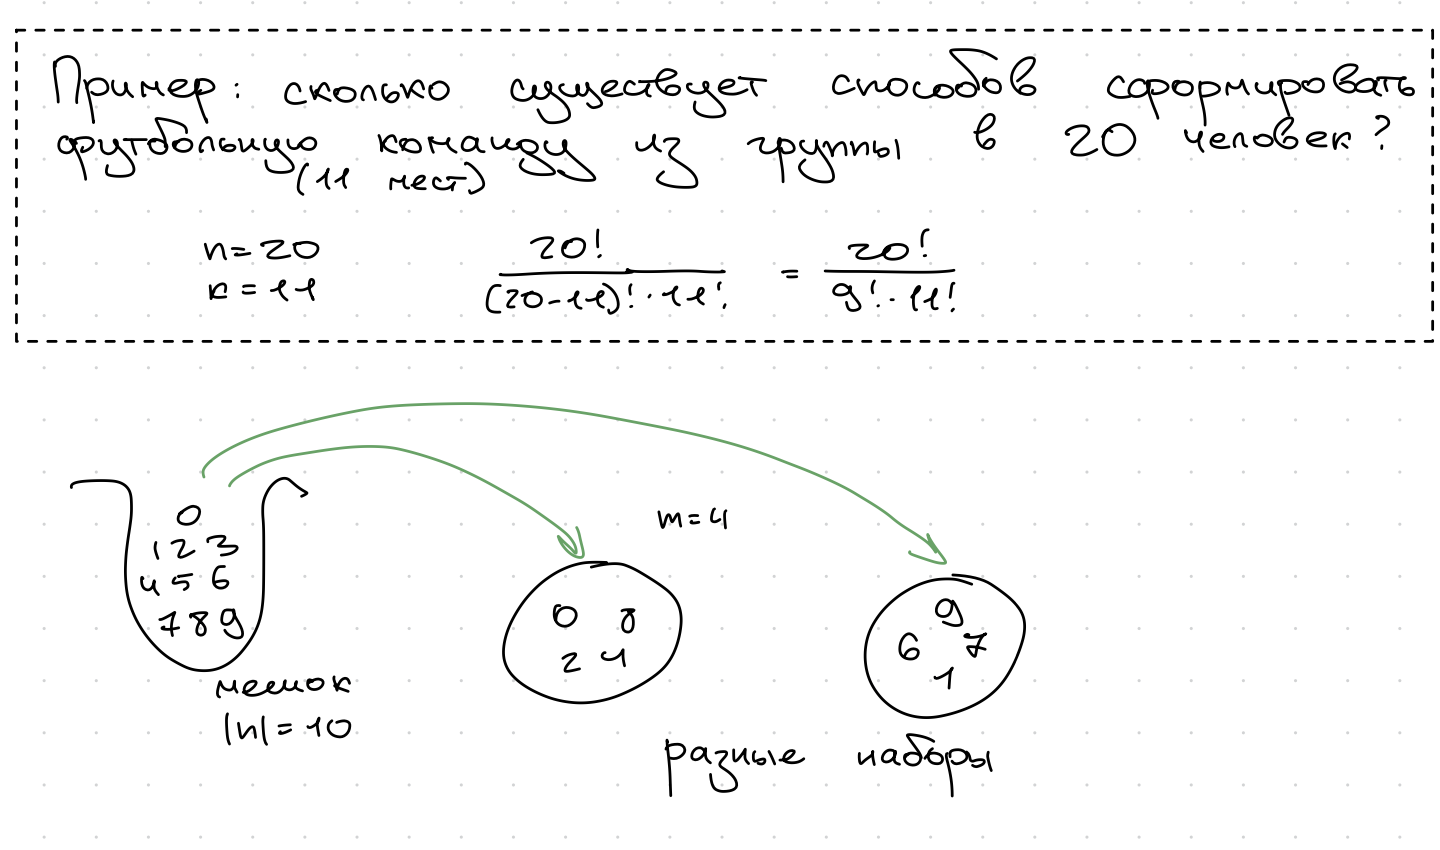 Пример: сколько существует способов сформировать
футбольную команду из группы в 20 человек?
(11 мест)
n=20
к=11
20! / (20-11)!·11! = 20! / 9!·11!
m=4
0
1 2 3
4 5 6
7 8 9
0 8
2 4
9
6 7
1
мешок
|n|=10
разные наборы